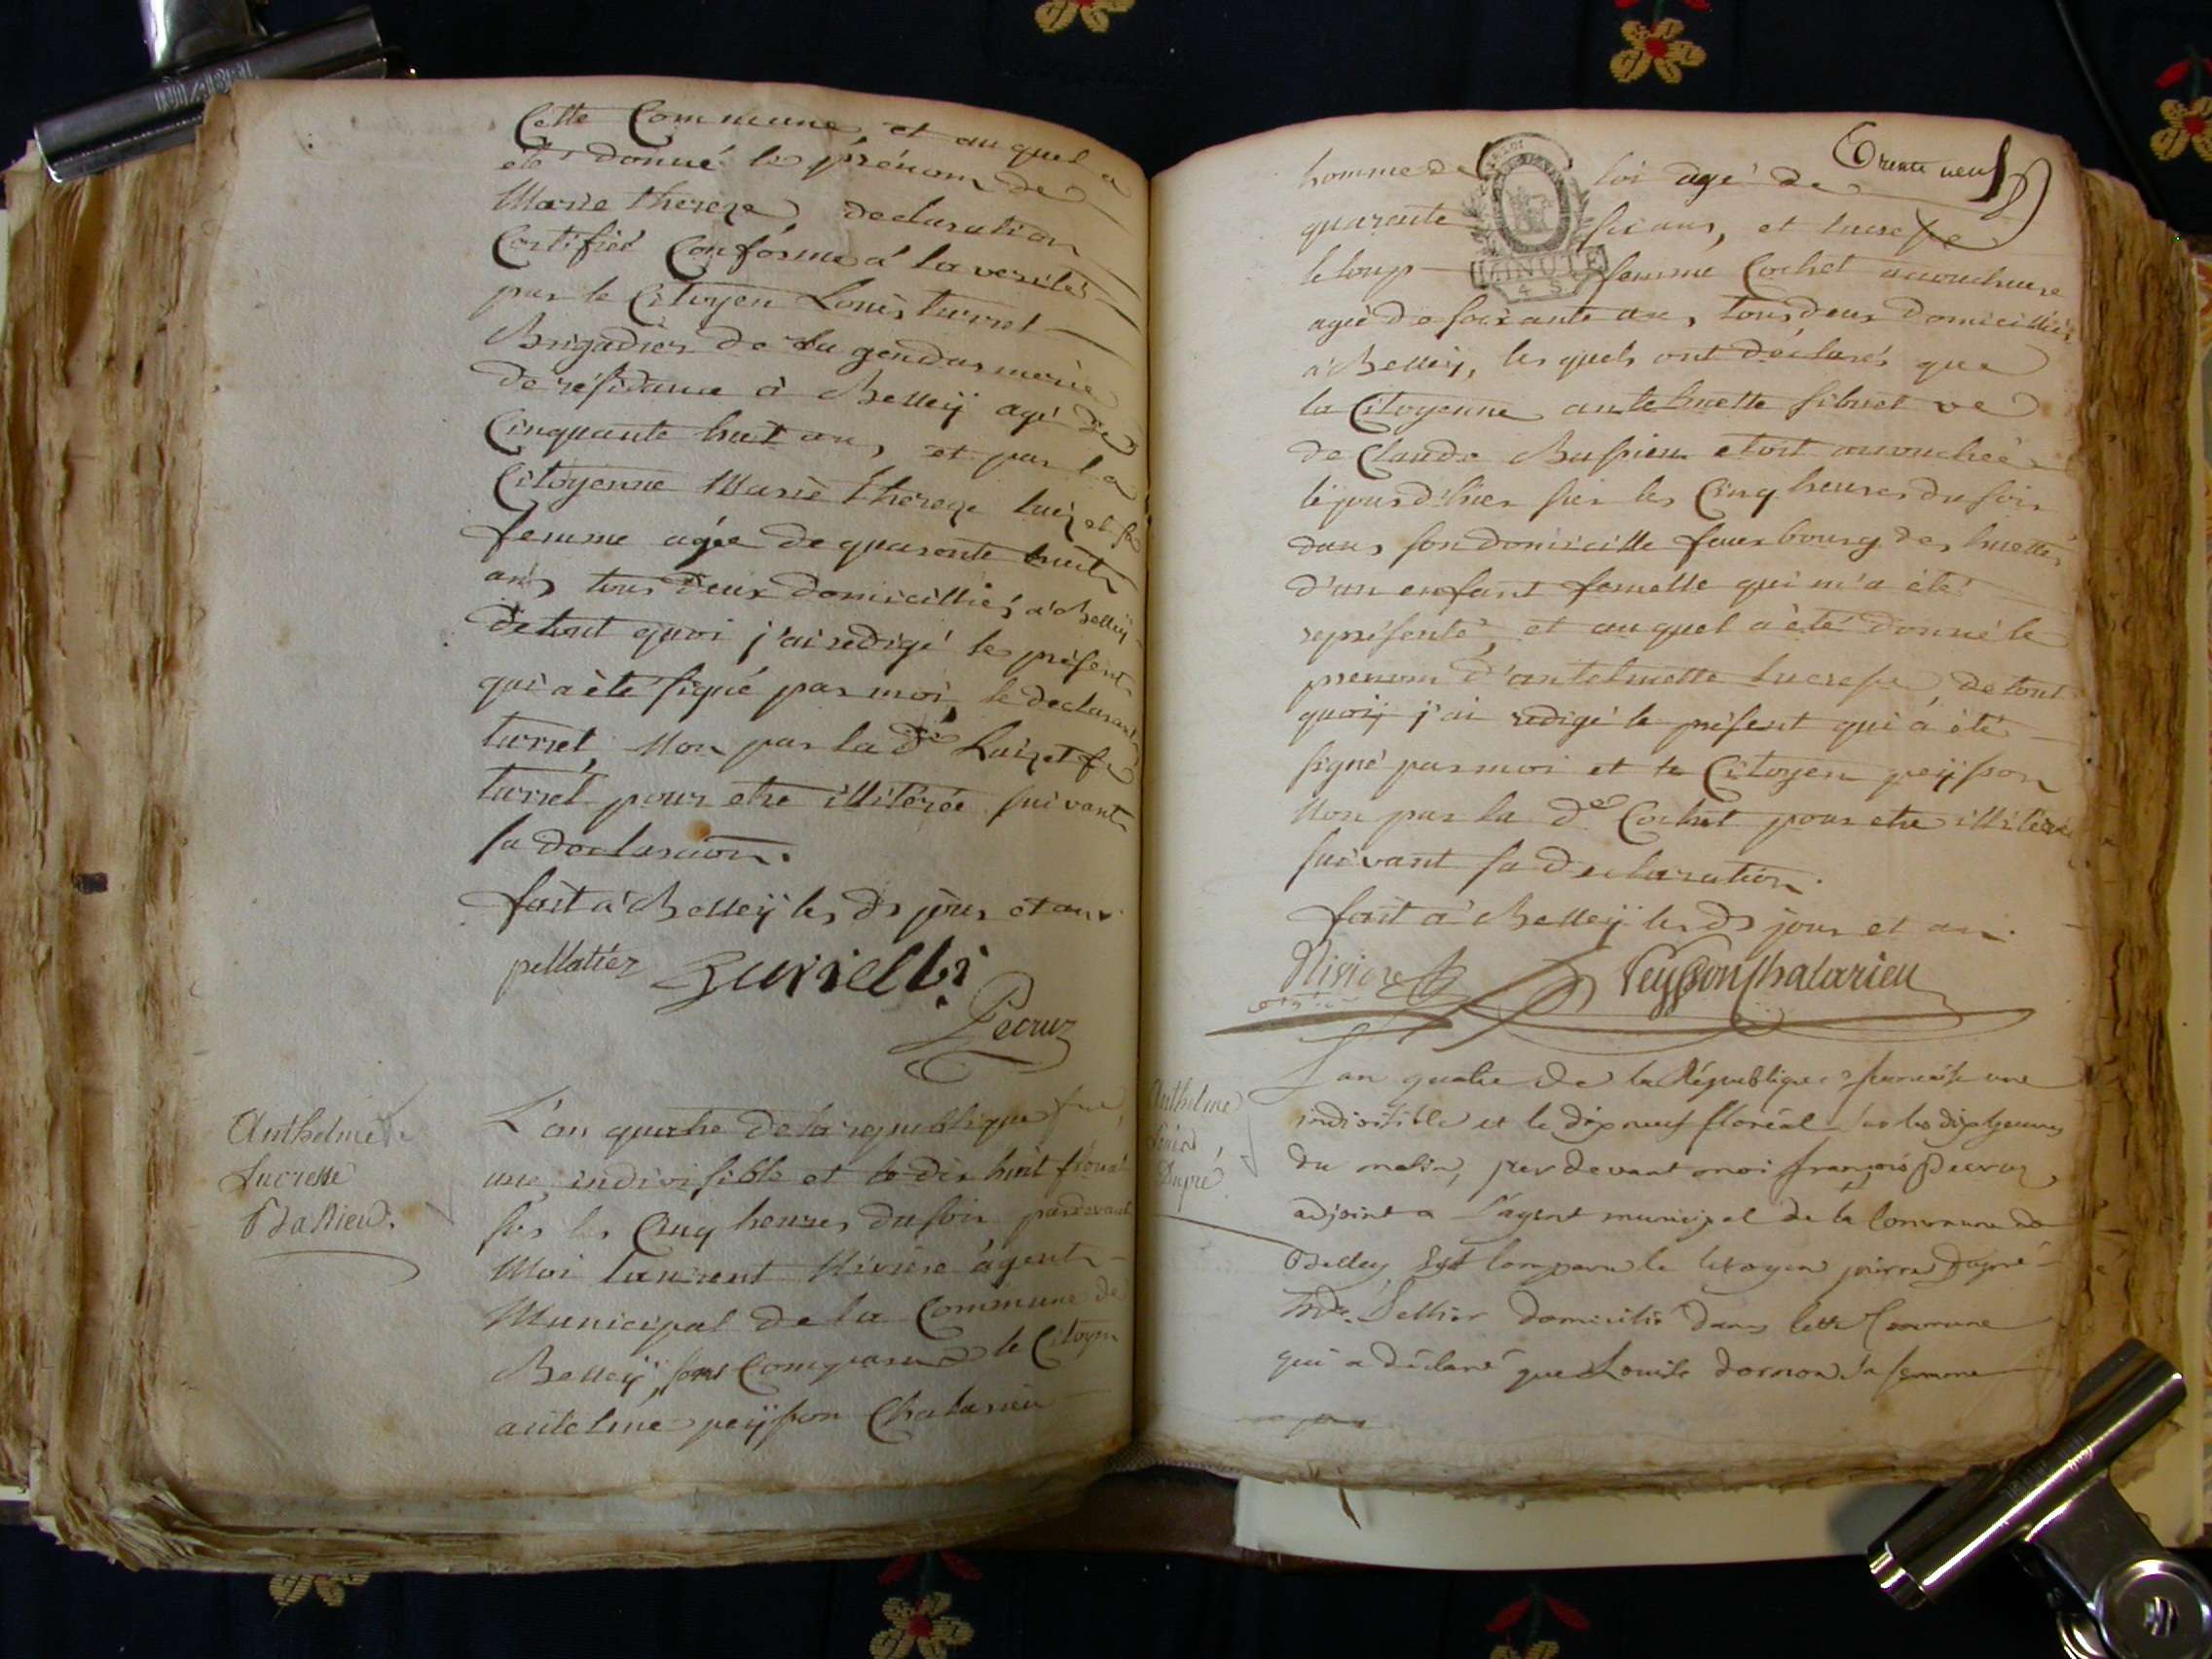 Cette Commune, et auquel a
été donné le prénom de
Marie thereze declaration
Certifiée Conforme à la verité
par le Citoyen Louis turrel
Brigadier de la gendarmerie
de résidance à Belleÿ agé de
Cinquante huit ans, et par la
Citoyenne Marie thereze luizet fe
femme agée de quarante huit
ans tous deux domicilliés à Belleÿ
de tout quoi j'ai redigé le présent
qui a été signé par moi, le declarant
turrel, Non par la de Luizet fe
turrel pour etre illiterée suivant
sa declaration.
fait à Belleÿ les ds jour et an.
pellatiez
Pecruz
Anthelme
Lucresse
L'an quatre de la republique fse
une indivisible et le dix huit floréal
sur les Cinq heures du soir pardevant
Moi laurent Riviere agent
Municipal de la Commune de
Belleÿ, sont Comparu le Citoyen
antelme peÿsson Chatarieu
Trente neuf
homme de loi agé de
quarante six ans, et lucresse
MINUTE
4 S
leloup femme Cochet accoucheuse
agée de soixante ans, tous deux domicilliés
à Belleÿ, les quels ont déclarés que
la Citoyenne antelmette sibuet ve
de Claude etoit accouchée
le jour d'hier sur les Cinq heures du soir
dans son domicille fauxbourg des huettes
d'un enfant femelle qui m'a été
représenté, et auquel a été donné le
prenom d'antelmette lucresse, de tout
quoiÿ j'ai redigé le présent qui a été
signé par moi et le Citoyen peÿsson
Non par la de Cochet pour etre illiterée
suivant sa declaration.
fait à Belleÿ les ds jour et an.
Riviere Peysson Chatarieu
Anthelme
Dupré
L'an quatre de la République française une
indivisible et le dix neuf floréal sur les dix heures
du matin, par devant moi françois Pecruz,
adjoint a l'agent municipal de la Commune de
Belley Est Comparu le Citoyen pierre Dupré
Md. Sellier domicilié dans cette Commune
qui a déclaré que Louise dornon sa femme